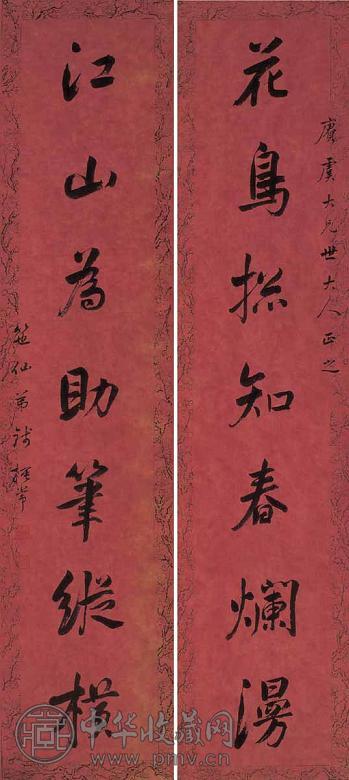 賡虞大兄世大人正之
花鳥摠知春爛漫
江山為助筆縱橫
仙弟錢振常
中华收藏网
www.pmv.cn